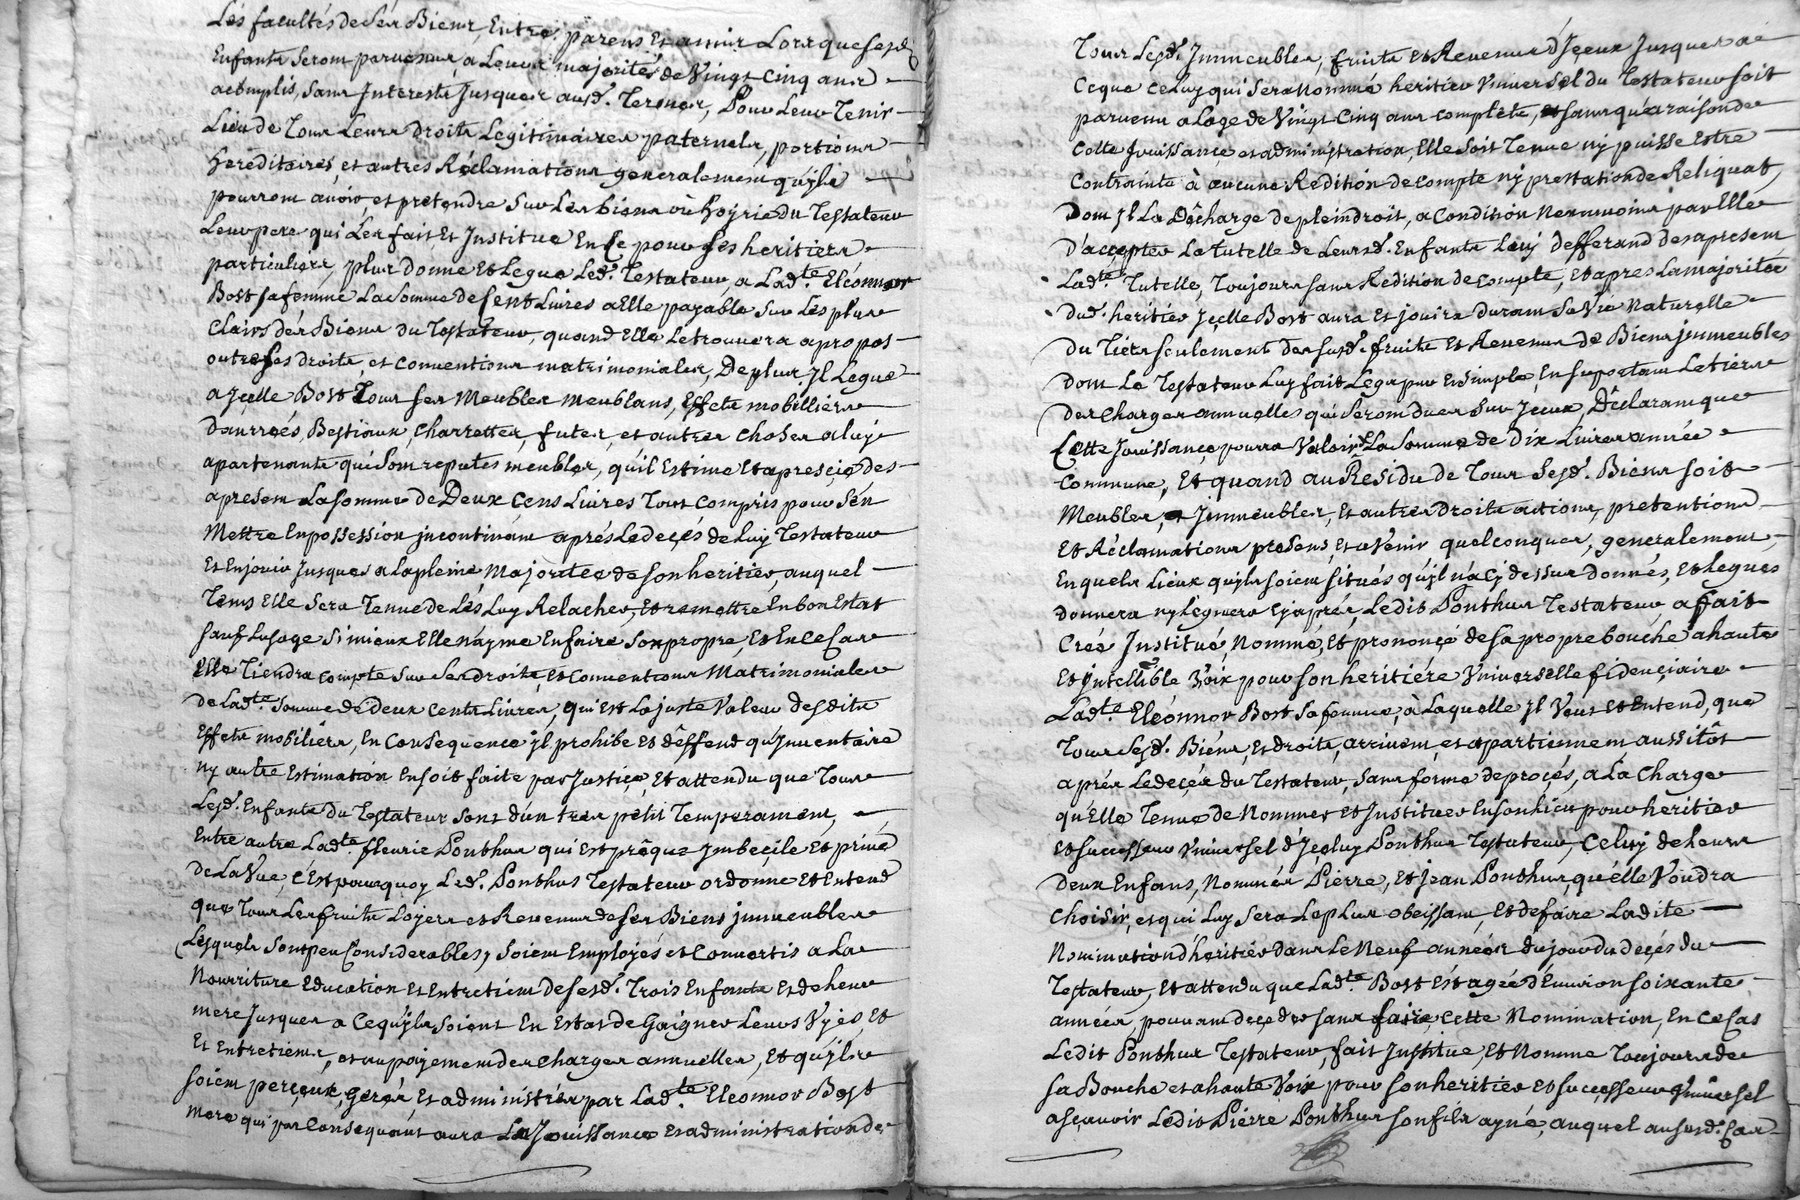 Les facultés de Ses Biens, Entre parens Et amis Lors que sesd.
Enfants seront parvenus, a Leurs majorités de Vingt Cinq ans
acomplis, sans Interests Jusques ausd. Termes, Pour Leur Tenir
Lieu de Tous Leurs Droits Legitimaires paternels, portions
Hereditaires, et autres Réclamations generalement qu'yls
pourront avoir, et pretendre Sur Les biens où hoyrie du Testateur
Leur pere qui Les fait Et Institue En Ce pour Ses heritiers
particuliers, plus donne Et Legue Led. Testateur a Lad.te Eléonnor
Bost sa femme La Somme de Cent Livres a Elle payable Sur Les plus
Clairs des Biens du Testateur, quand Elle Le trouvera apropos
outre Ses droits, et Conventions matrimoniales, De plus Jl Legue
a Jçelle Bost Tous ses Meubles meublans, Effets mobilliers
Danrreés, Bestiaux, Charrettes, futes, et autres choses a luy
apartenants qui Sont reputés meubles, qu'il Estime Et apresçie des
apresent La somme de Deux Cens Livres Tout Compris pour s'en
Mettre En possession jncontinant après Le deçés de Luy Testateur
Et En jouir Jusques a La pleine Majoritée de Son heritier, auquel
Tems Elle Sera Tenue de Les Luy Relacher, Et remettre En bon Estat
sauf Lusage Si mieux Elle n'ayme En faire Son propre, Et En Ce Cas
Elle Tiendra Compte Sur Ses droits, et Conventions Matrimoniales
de Lad.te Somme de Deux Cents Livres, qui Est La juste Valeur Desdits
Effets mobiliers, En Consequence jl prohibe Et deffend qu'Jnventaire
ny autre Estimation En soit faite par Justiçe, Et attendu que Tous
Lesd. Enfants du Testateur sont d'un tres petit Temperament,
Entre autre Lad.te fleurie Ponthus qui Est presque Jmbeçile Et privé
De La Vue, c'Est pourquoy Led. Ponthus Testateur ordonne Et Entend
que Tous Les fruits Loyers et Revenus de Ses Biens jmmeubles
Lesquels sont peu Considerables, soient Employés et Convertis a La
Nourriture Education et Entretiens de sesd. Trois Enfants Et de Leur
mere Jusques a Ce qu'yls Soient En Estat de Gaigner Leurs Vyes, Et
Et Entretiens, et au payement des Charges annuelles, Et qu'yls
soient perçeus, gerés, Et administrés par Lad.te Eléonnor Bost
Mere qui par Consequant aura La Jouissance Et administration de
Tous Lesd. Jmmeubles, fruits Et Revenus d'Jçeux Jusques a
Ce que Celuy qui Sera Nommé heritier Universel du Testateur soit
parvenu a Lage de Vingt Cinq ans Complets, sans qu'a raison de
Cette Jouissance et administration, Elle Soit Tenue ny puisse Estre
Contrainte à aucune Redition de Compte ny prestation de Reliquat,
Dont Jl La Décharge de plein droit, a Condition Neanmoins par Elle
D'accepter La Tutelle de Leursd. Enfants Luy defferand des apresent
Lad.te Tutelle, Toujours sans Redition de Compte, Et apres La majorité
Dud. heritier Jçelle Bost aura Et jouira durant Sa Vie Naturelle
Du Tiers seulement des susd. fruits Et Revenus de Biens jmmeubles
Dont Le Testateur Luy fait Legs pur Et simple, En suportant Le tiers
Des Charges annuelles qui Seront dues Sur Jceux, Déclarant que
Cette Jouissance pourra Valoir La Somme de Dix Livres année
Commune, Et quand au Residu de Tous Sesd. Biens soit
Meubles, Jmmeubles, Et autres droits actions, pretentions
Et Réclamations presens, Et avenir quelconques, generalement
En quels Lieux qu'yls soient situés qu'yl n'a Cy dessus donnés, et Legués
donnera ny Leguera Cy après, Ledit Ponthus Testateur a fait
Créé Institué, Nommé, Et prononçé de sa propre bouche a haute
Et jntellible Voix pour Son heritiére Universelle fidençiaire
Lad.te Eléonnor Bost Sa femme, à Laquelle Jl Veut Et Entend, que
Tous Sesd. Biens, Et droits, arrivent, et apartiennent aussitôt
après Le deçés du Testateur, Sans forme de proçés, a La Charge
qu'Elle Tenue de Nommer et Instituer En son Lieu pour heritier
et successeur Universel d'Jçeluy Ponthus Testateur, Celuy de Leurs
Deux Enfans, Nommés Pierre, Et Jean Ponthus, qu'elle Voudra
Choisir, et qui Luy Sera Le plus obeissant, Et de faire Ladite
Nomination d'heritier dans Le Neuf années du jour du deçés du
Testateur, Et attendu que Lad.te Bost Est agée d'Environ soixante
années, pouvant deçeder sans faire Cette Nomination, En Ce Cas
Ledit Ponthus Testateur, fait Institue, Et Nomme Toujours de
sa Bouche et a haute Voix pour Son heritier Et successeur Universel
asçavoir Ledit Pierre Ponthus Son fils ayné, auquel aususd. Cas